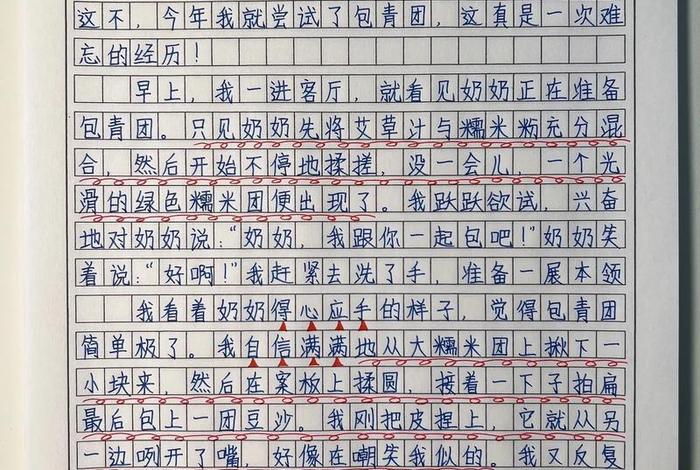 这不，今年我就尝试了包青团，这真是一次难
忘的经历！
早上，我一进客厅，就看见奶奶正在准备
包青团。只见奶奶先将艾草汁与糯米粉充分混
合，然后开始不停地揉搓，没一会儿，一个光
滑的绿色糯米团便出现了。我跃跃欲试，兴奋
地对奶奶说：“奶奶，我跟你一起包吧！”奶奶笑
着说：“好啊！”我赶紧去洗了手，准备一展本领
我看着奶奶得心应手的样子，觉得包青团
简单极了。我自信满满地从大糯米团上揪下一
小块来，然后在案板上揉圆，接着一下子拍扁
最后包上一团豆沙。我刚把皮捏上，它就从另
一边咧开了嘴，好像在嘲笑我似的。我又反复